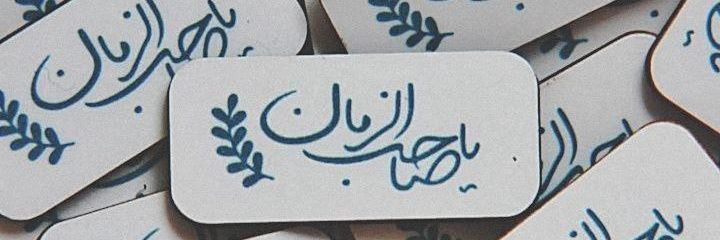 یا صاحب الزمان
یا صاحب الزمان